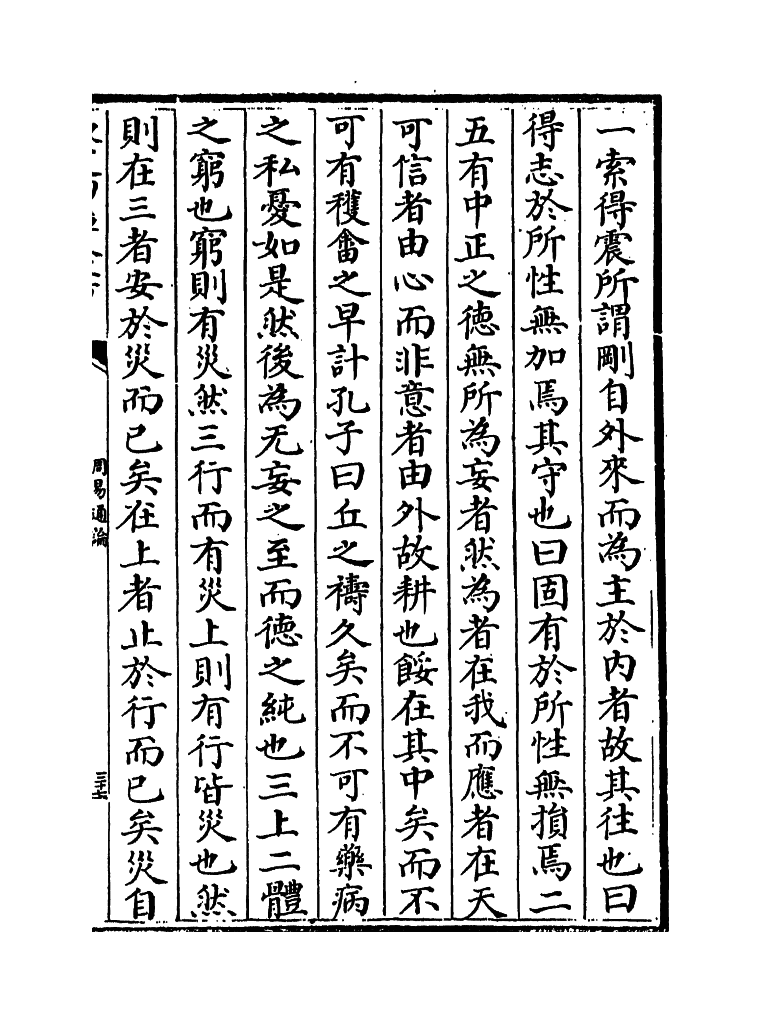 一索得震所謂剛自外來而為主於内者故其往也曰
得志於所性無加焉其守也曰固有於所性無損焉二
五有中正之徳無所為妄者然為者在我而應者在天
可信者由心而非意者由外故耕也餒在其中矣而不
可有穫畬之早計孔子曰丘之禱久矣而不可有藥病
之私憂如是然後為无妄之至而徳之純也三上二體
之窮也窮則有災然三行而有災上則有行皆災也然
則在三者安於災而已矣在上者止於行而已矣災自
周易通論
三十七